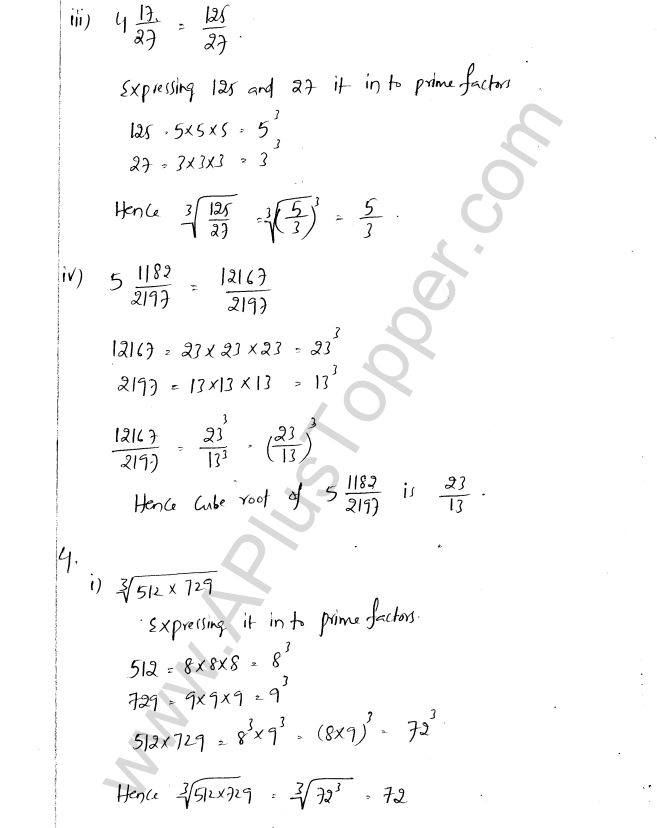 iii) 4 17/27 = 125/27.
Expressing 125 and 27 it in to prime factors
125 = 5×5×5 = 5³
27 = 3×3×3 = 3³
Hence ∛(125/27) = ∛(5/3)³ = 5/3.
iv) 5 1182/2197 = 12167/2197
12167 = 23 × 23 × 23 = 23³
2197 = 13×13×13 = 13³
12167/2197 = 23³/13³ = (23/13)³
Hence Cube root of 5 1182/2197 is 23/13.
4.
i) ∛(512 × 729)
Expressing it in to prime factors.
512 = 8×8×8 = 8³
729 = 9×9×9 = 9³
512×729 = 8³×9³ = (8×9)³ = 72³
Hence ∛(512×729) = ∛(72³) = 72
www.APlusTopper.com